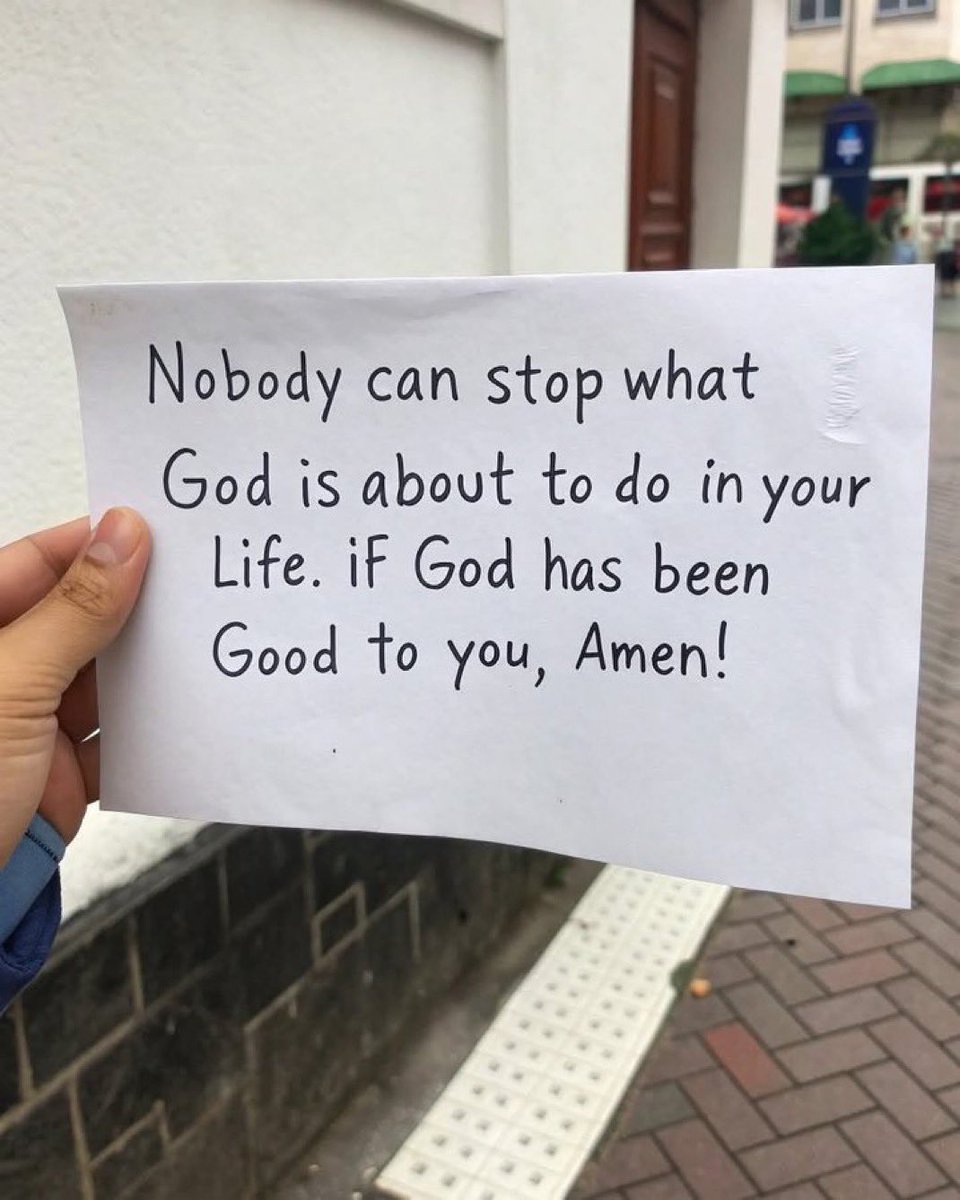 Nobody can stop what
God is about to do in your
Life. iF God has been
Good to you, Amen!